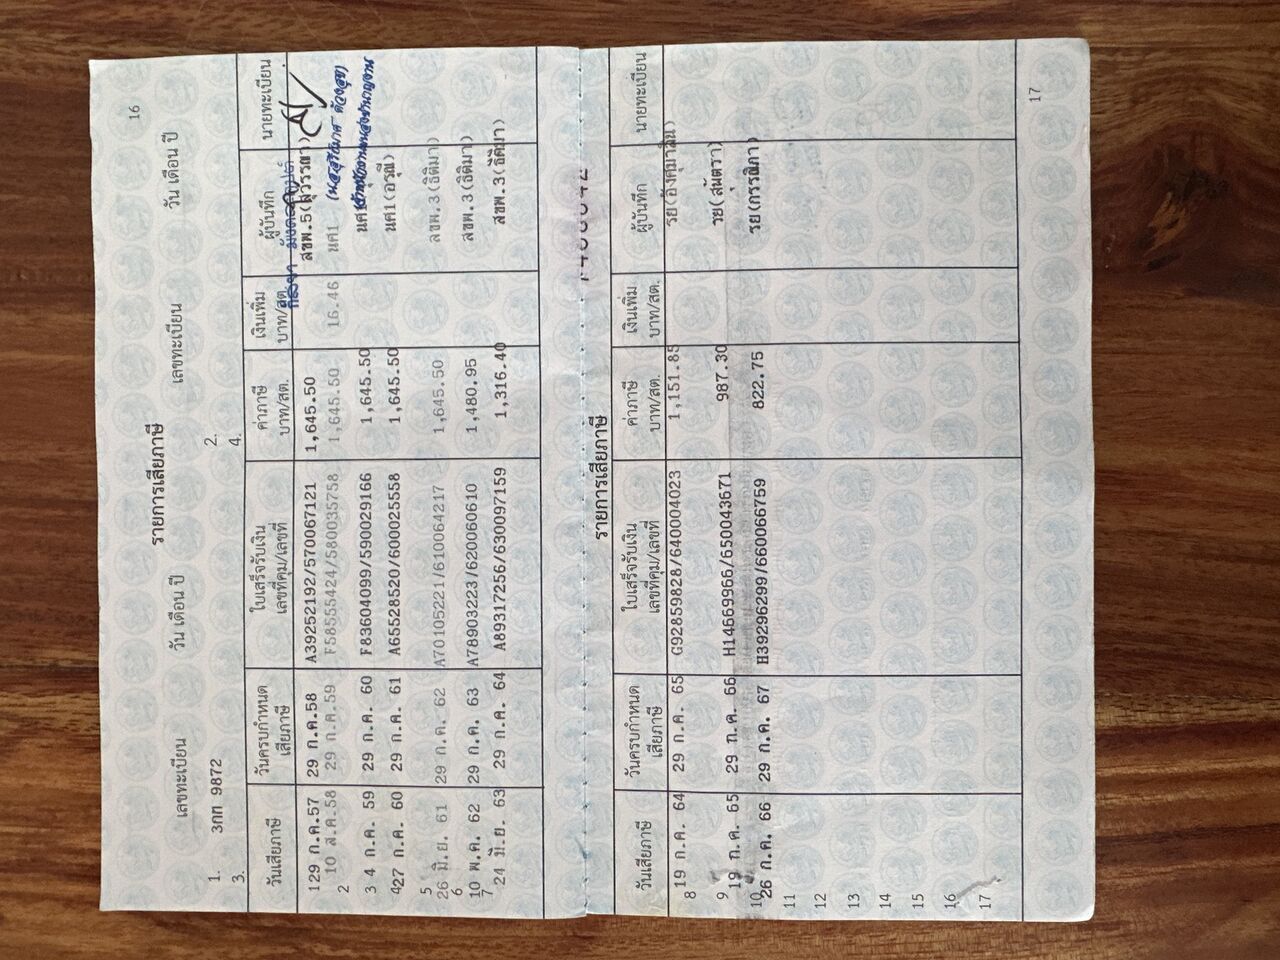 16
รายการเสียภาษี
เลขทะเบียน วัน เดือน ปี เลขทะเบียน วัน เดือน ปี
1. 3กก 9872 2.
3. 4.
วันเสียภาษี วันครบกำหนดเสียภาษี ใบเสร็จรับเงิน เลขที่คุม/เลขที่ ค่าภาษี บาท/สต. เงินเพิ่ม บาท/สต. ผู้บันทึก นายทะเบียน
1 29 ก.ค.57 29 ก.ค.58 A39252192/570067121 1,645.50 สขพ.5(สุวรรณา)
2 10 ส.ค.58 29 ก.ค.59 F58555424/580035758 1,645.50 16.46 นศ1
3 4 ก.ค. 59 29 ก.ค. 60 F83604099/590029166 1,645.50 นศ1
4 27 ก.ค. 60 29 ก.ค. 61 A65528520/600025558 1,645.50 นศ1(อรุณี)
5 26 มิ.ย. 61 29 ก.ค. 62 A70105221/610064217 1,645.50 สขพ.3(ธิติมา)
6 10 พ.ค. 62 29 ก.ค. 63 A78903223/620060610 1,480.95 สขพ.3(ธิติมา)
7 24 มิ.ย. 63 29 ก.ค. 64 A89317256/630097159 1,316.40 สขพ.3(ธิติมา)
รายการเสียภาษี
วันเสียภาษี วันครบกำหนดเสียภาษี ใบเสร็จรับเงิน เลขที่คุม/เลขที่ ค่าภาษี บาท/สต. เงินเพิ่ม บาท/สต. ผู้บันทึก นายทะเบียน
8 19 ก.ค. 64 29 ก.ค. 65 G92859828/640004023 1,151.85 รย(อังศุมาลิน)
9 19 ก.ค. 65 29 ก.ค. 66 H14669966/650043671 987.30 รย(สันตรา)
10 26 ก.ค. 66 29 ก.ค. 67 H39296299/660066759 822.75 รย(กรรณิกา)
11
12
13
14
15
16
17
17